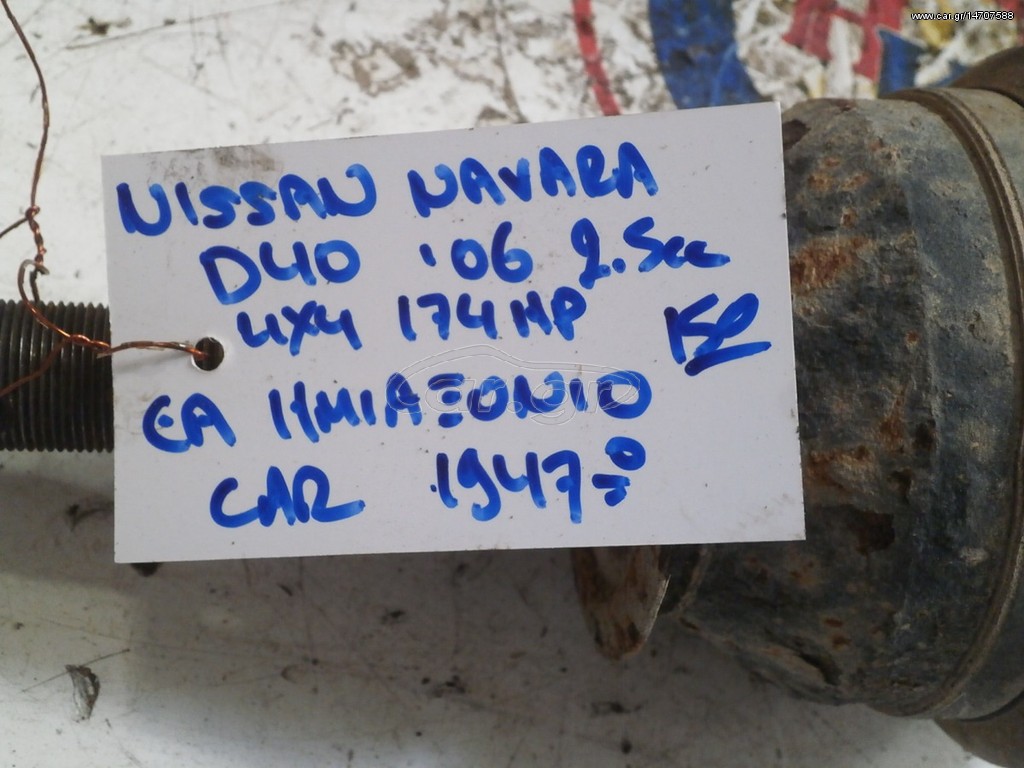 www.car.gr/14707588
NISSAN NAVARA
D40 '06 2.5cc
4X4 174HP
ΕΛ ΗΜΙΑΞΟΝΙΟ
CAR 1947